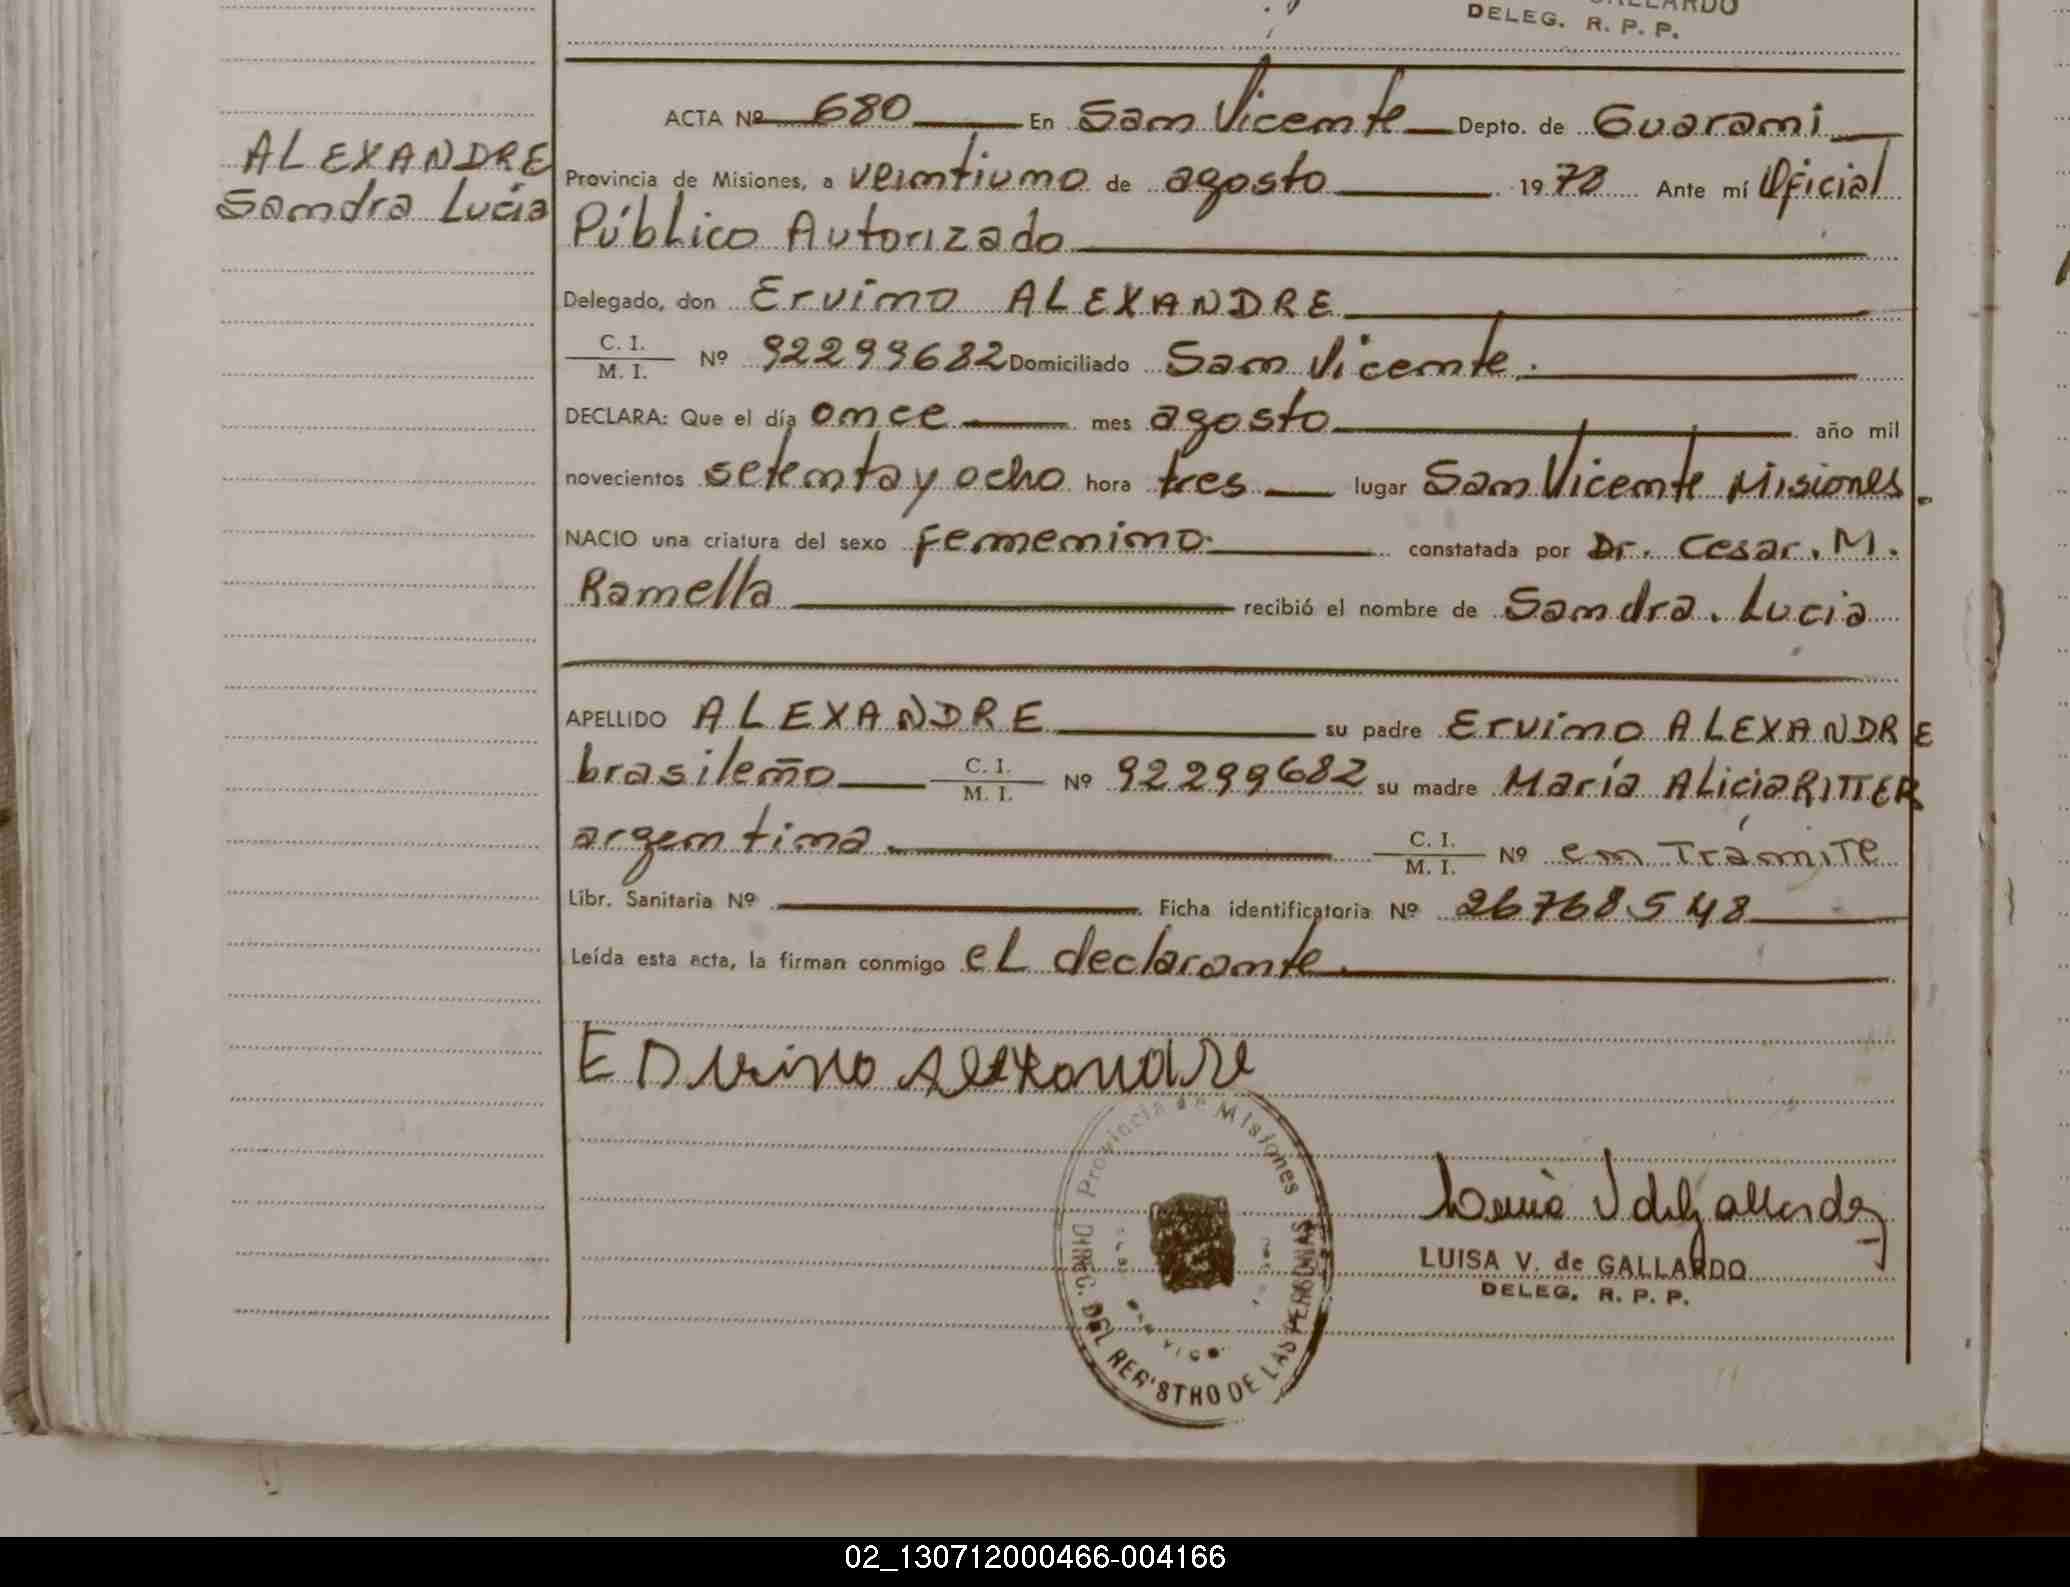 GALLARDO
DELEG. R. P. P.
ALEXANDRE
Sandra Lucia
ACTA Nº 680 En San Vicente Depto. de Guarani
Provincia de Misiones, a veintiuno de agosto 1978 Ante mí Oficial
Público Autorizado
Delegado, don Ervino ALEXANDRE
C. I.
M. I. Nº 92299682 Domiciliado San Vicente.
DECLARA: Que el día once mes agosto año mil
novecientos setenta y ocho hora tres lugar San Vicente Misiones.
NACIO una criatura del sexo femenino. constatada por Dr. Cesar. M.
Ramella recibió el nombre de Sandra. Lucia
APELLIDO ALEXANDRE su padre Ervino ALEXANDRE
brasileño C. I. M. I. Nº 92299682 su madre María ALicia RITTER
argentina. C. I. M. I. Nº en Trámite
Libr. Sanitaria Nº Ficha identificatoria Nº 26768548
Leída esta acta, la firman conmigo eL declarante.
E Dervino Alexandre
Provincia de Misiones
DIREC. DEL REGISTRO DE LAS PERSONAS
Luisa V de Gallardo
LUISA V. de GALLARDO
DELEG. R. P. P.
02_130712000466-004166